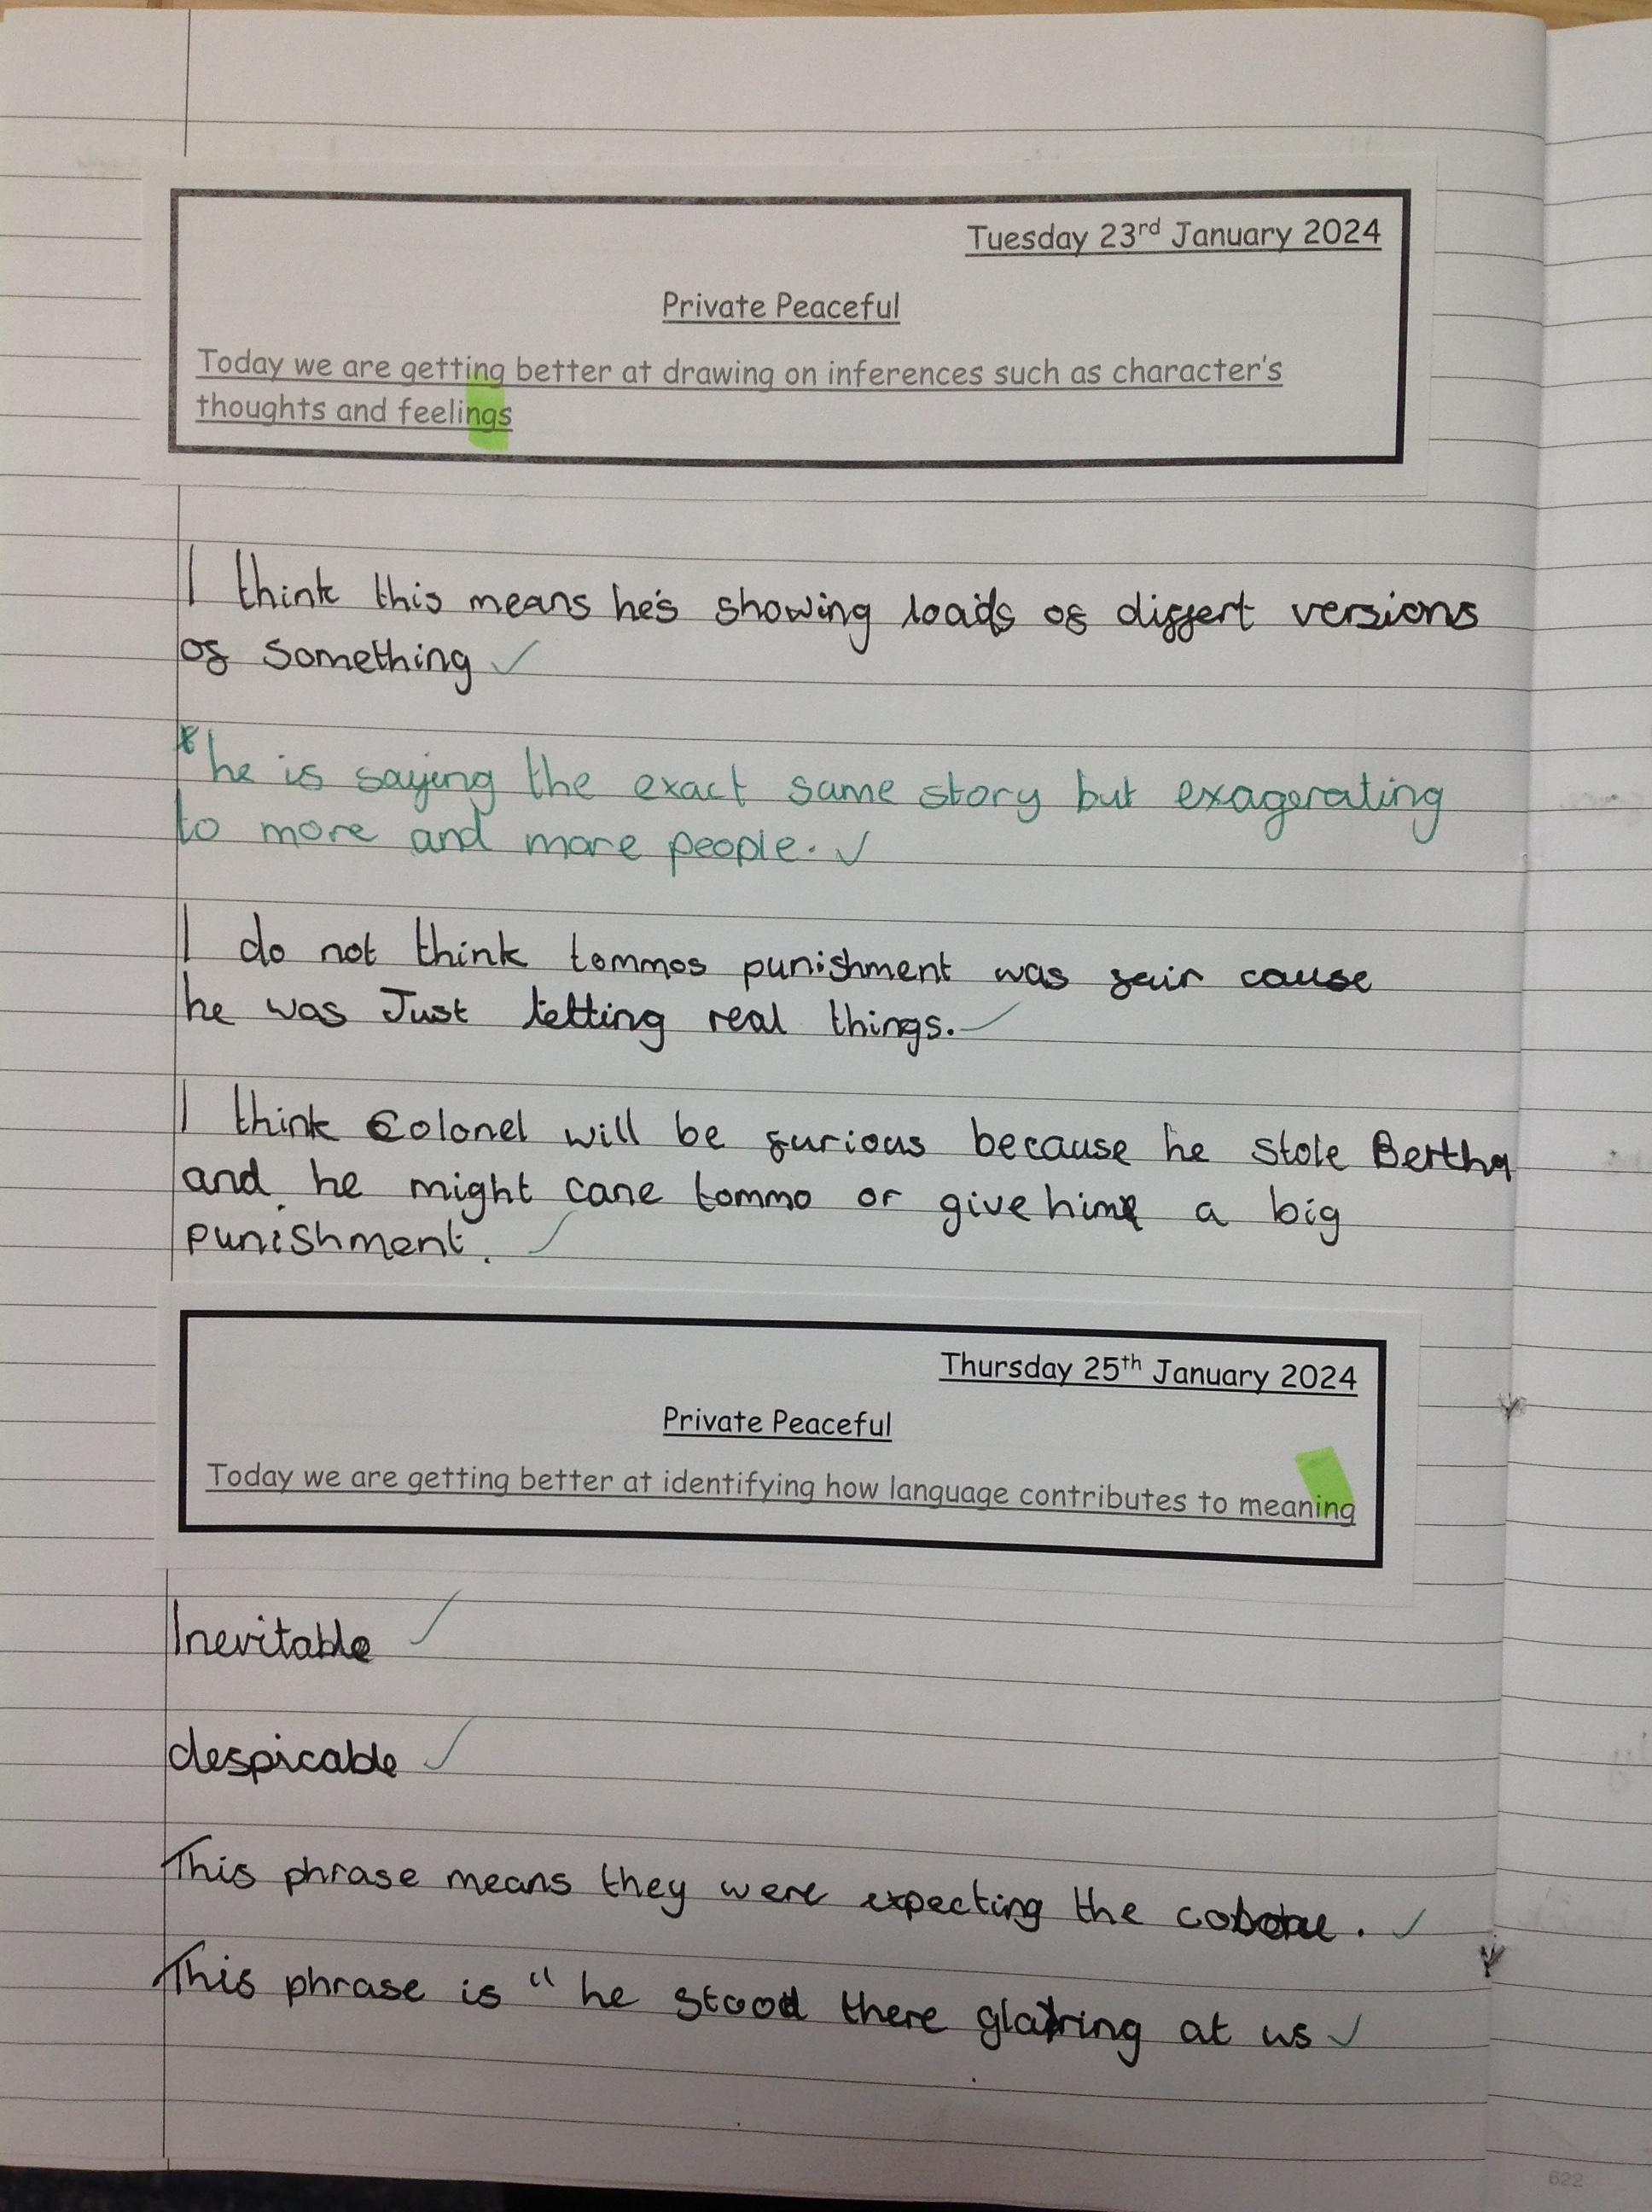 Tuesday 23rd January 2024
Private Peaceful
Today we are getting better at drawing on inferences such as character's
thoughts and feelings
I think this means he's showing loads of differt versions
of something ✓
*he is saying the exact same story but exagerating
to more and more people. ✓
I do not think tommos punishment was fair cause
he was Just telling real things. ✓
I think Colonel will be furious because he stole Bertha
and he might cane tommo or give him a big
punishment. ✓
Thursday 25th January 2024
Private Peaceful
Today we are getting better at identifying how language contributes to meaning
Inevitable ✓
despicable ✓
This phrase means they were expecting the . ✓
This phrase is " he stood there glaring at us ✓
622